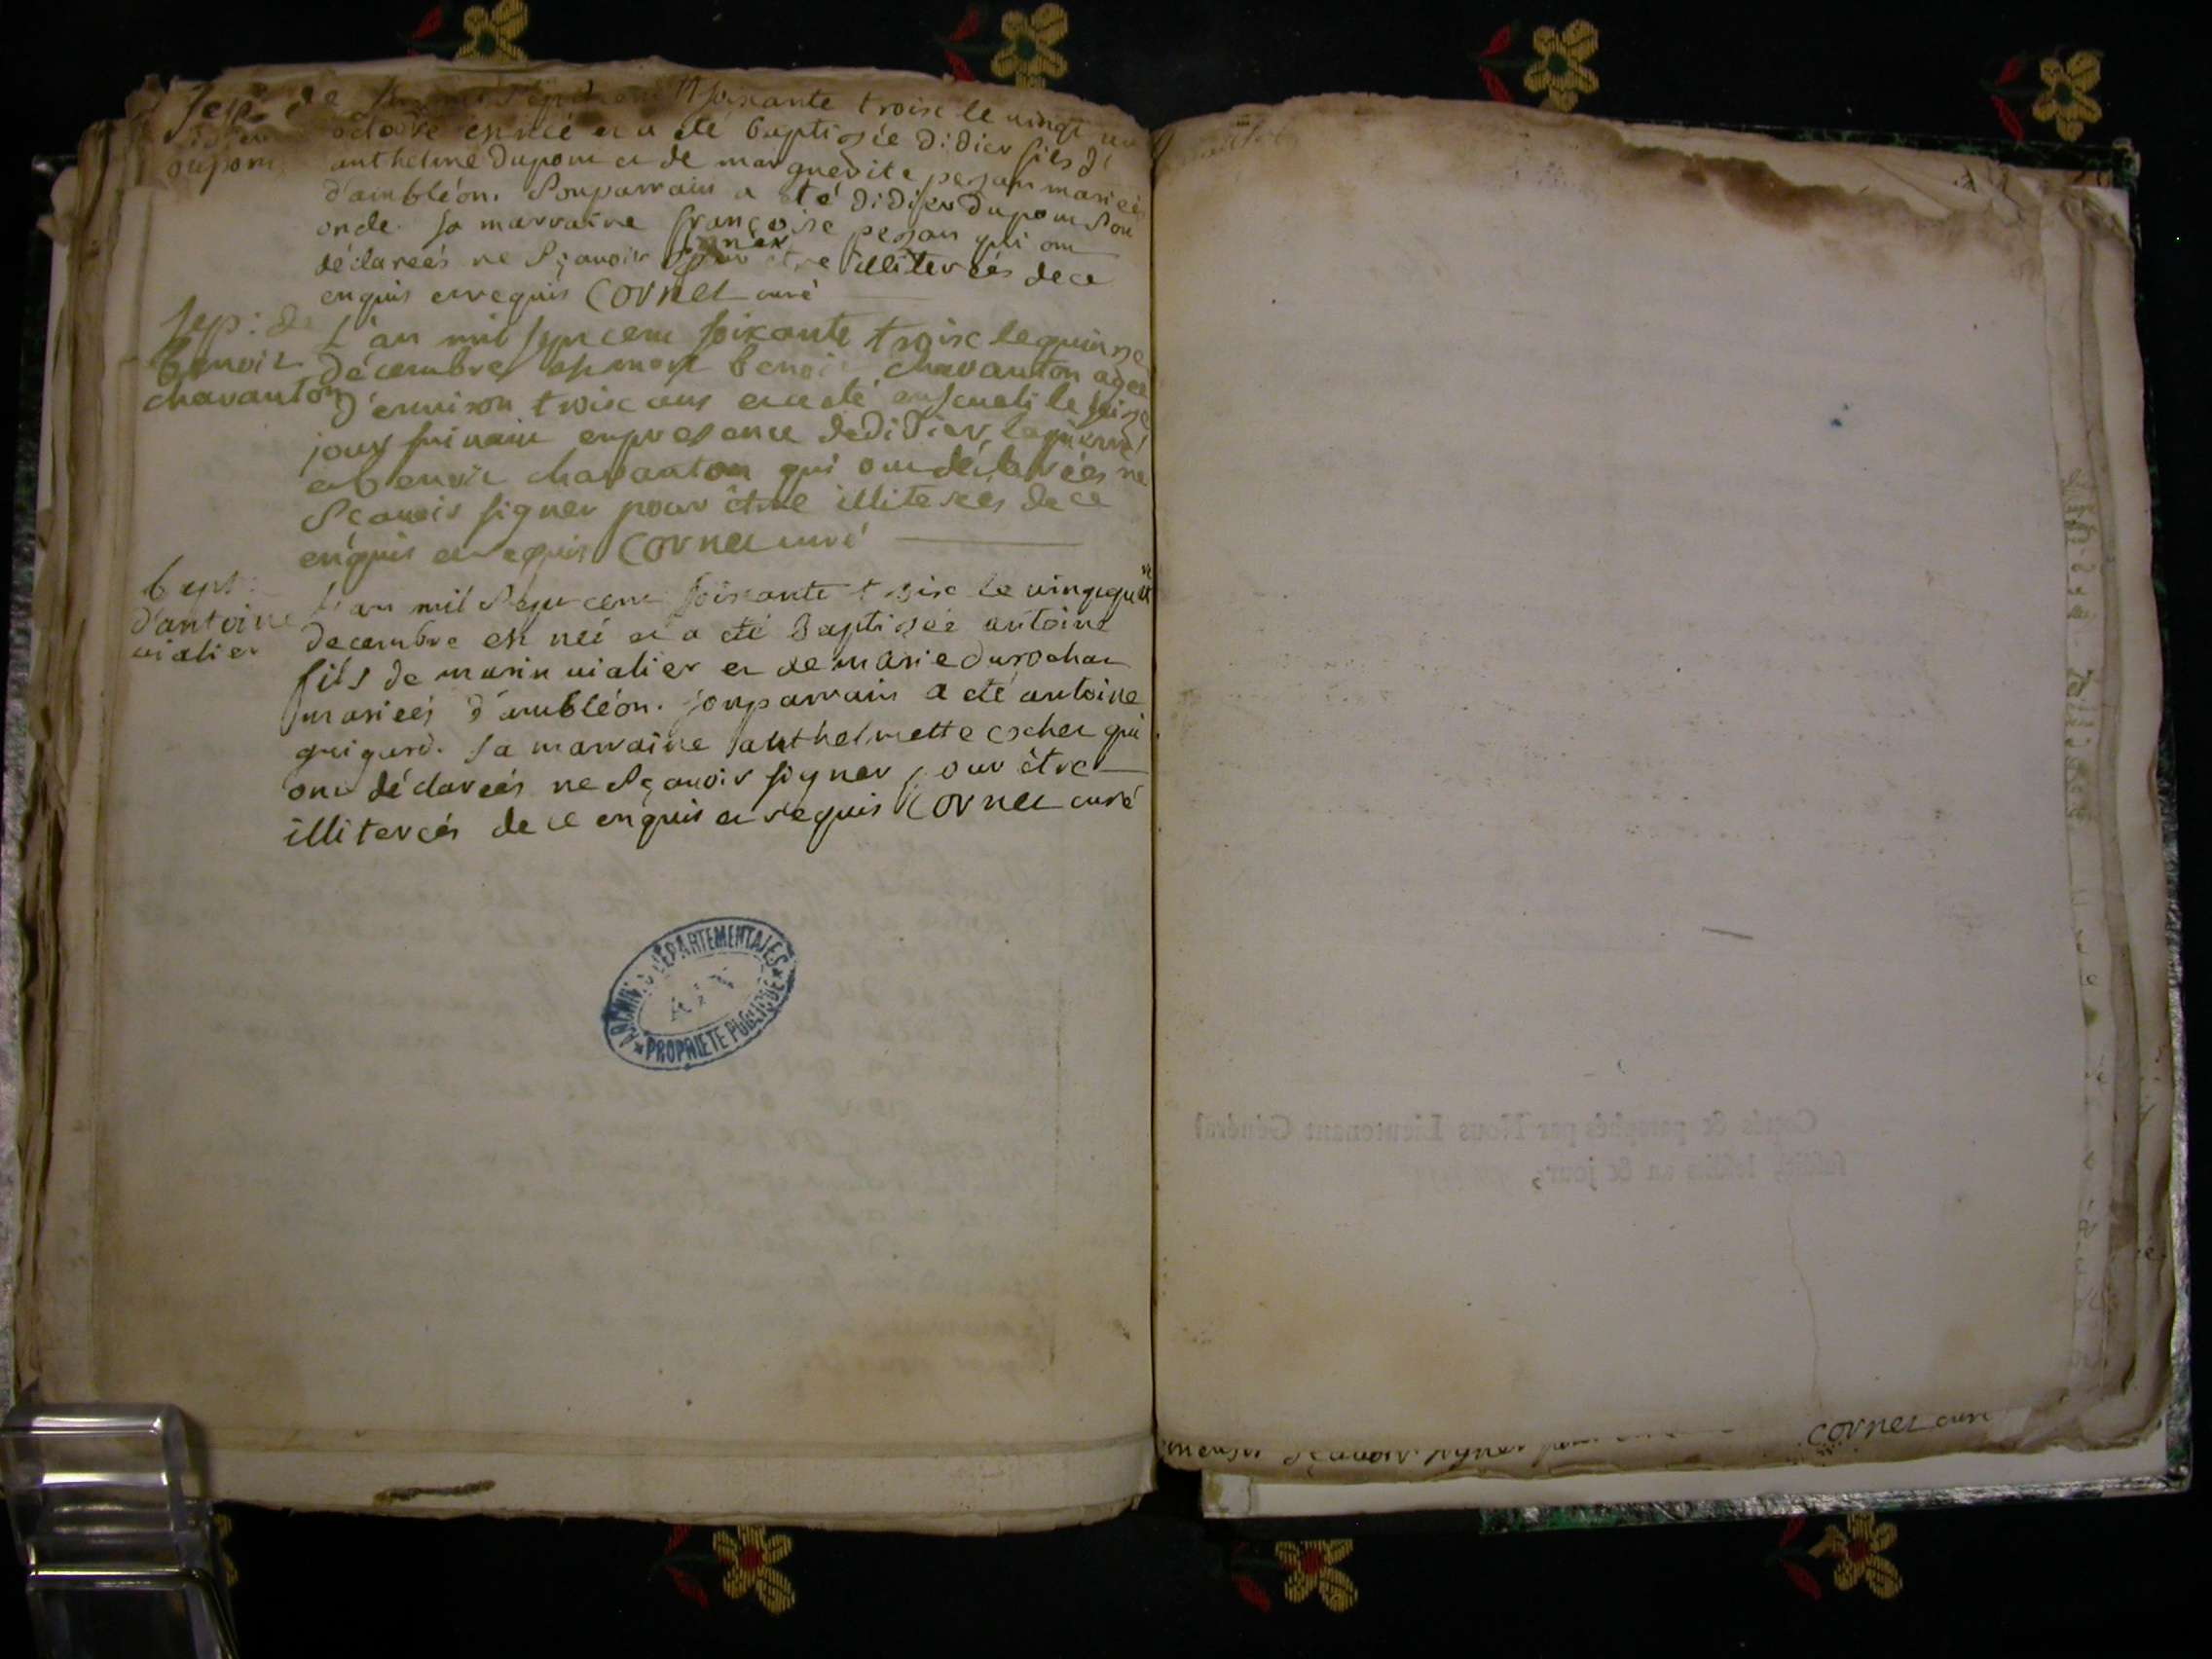 Sep: de
soixante troise le vingt un
octobre est née et a été baptisée didier fils de
dupont
anthelme Dupont et de marguerite pezan mariéés
d'ambléon. Son parrain a été didier dupont Son
oncle. Sa marraine françoise pezan qui ont
signer
déclareés ne Sçavoir pour etre illitereés de ce
enquis et requis Cornet curé
Sep: de
benoit
chavanton
L'an mil Sept cent soixante troise le quinze
décembre est mort benoit chavanton agee
d'environ troise ans et a été enseveli le seize
jour suivant en presence de didier
et benoit chavanton qui ont déclareés ne
Sçavoir signer pour être illitereés de ce
enquis et requis Cornet curé
bapt:
d'antoine
vialier
L'an mil Sept cent soixante troise le vingt
decembre est neé et a eté Baptisée antoine
fils de marin vialier et de marie durochat
marieés d'ambléon. son parrain a eté antoine
guigard. Sa marraine anthelmette escher qui
ont déclareés ne Sçavoir signer pour être
illitereés de ce enquis et requis Cornet curé
ARCHIVES DÉPARTEMENTALES
AIN
PROPRIÉTÉ PUBLIQUE
Cottés & paraphés par Nous Lieutenant Général
lesdits an & jour,
Sçavoir signer
cornet curé